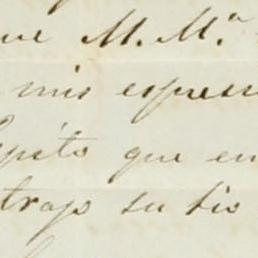 que M. M.ª
mis espresi
Pepito que en
trajo su tio